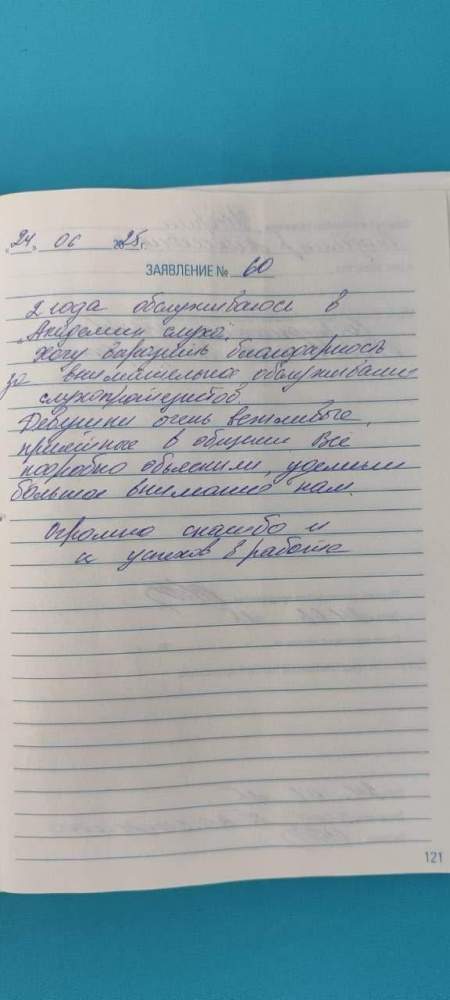 "24" 06 2025г.
ЗАЯВЛЕНИЕ № 60
2 года обслуживаюсь в
"Академии слуха".
Хочу выразить благодарность
за внимательное обслуживание
слухопротезистов.
Девушки очень вежливые,
приятные в общении. Все
подробно объяснили, уделили
большое внимание нам.
Огромно спасибо и
и успехов в работе
121